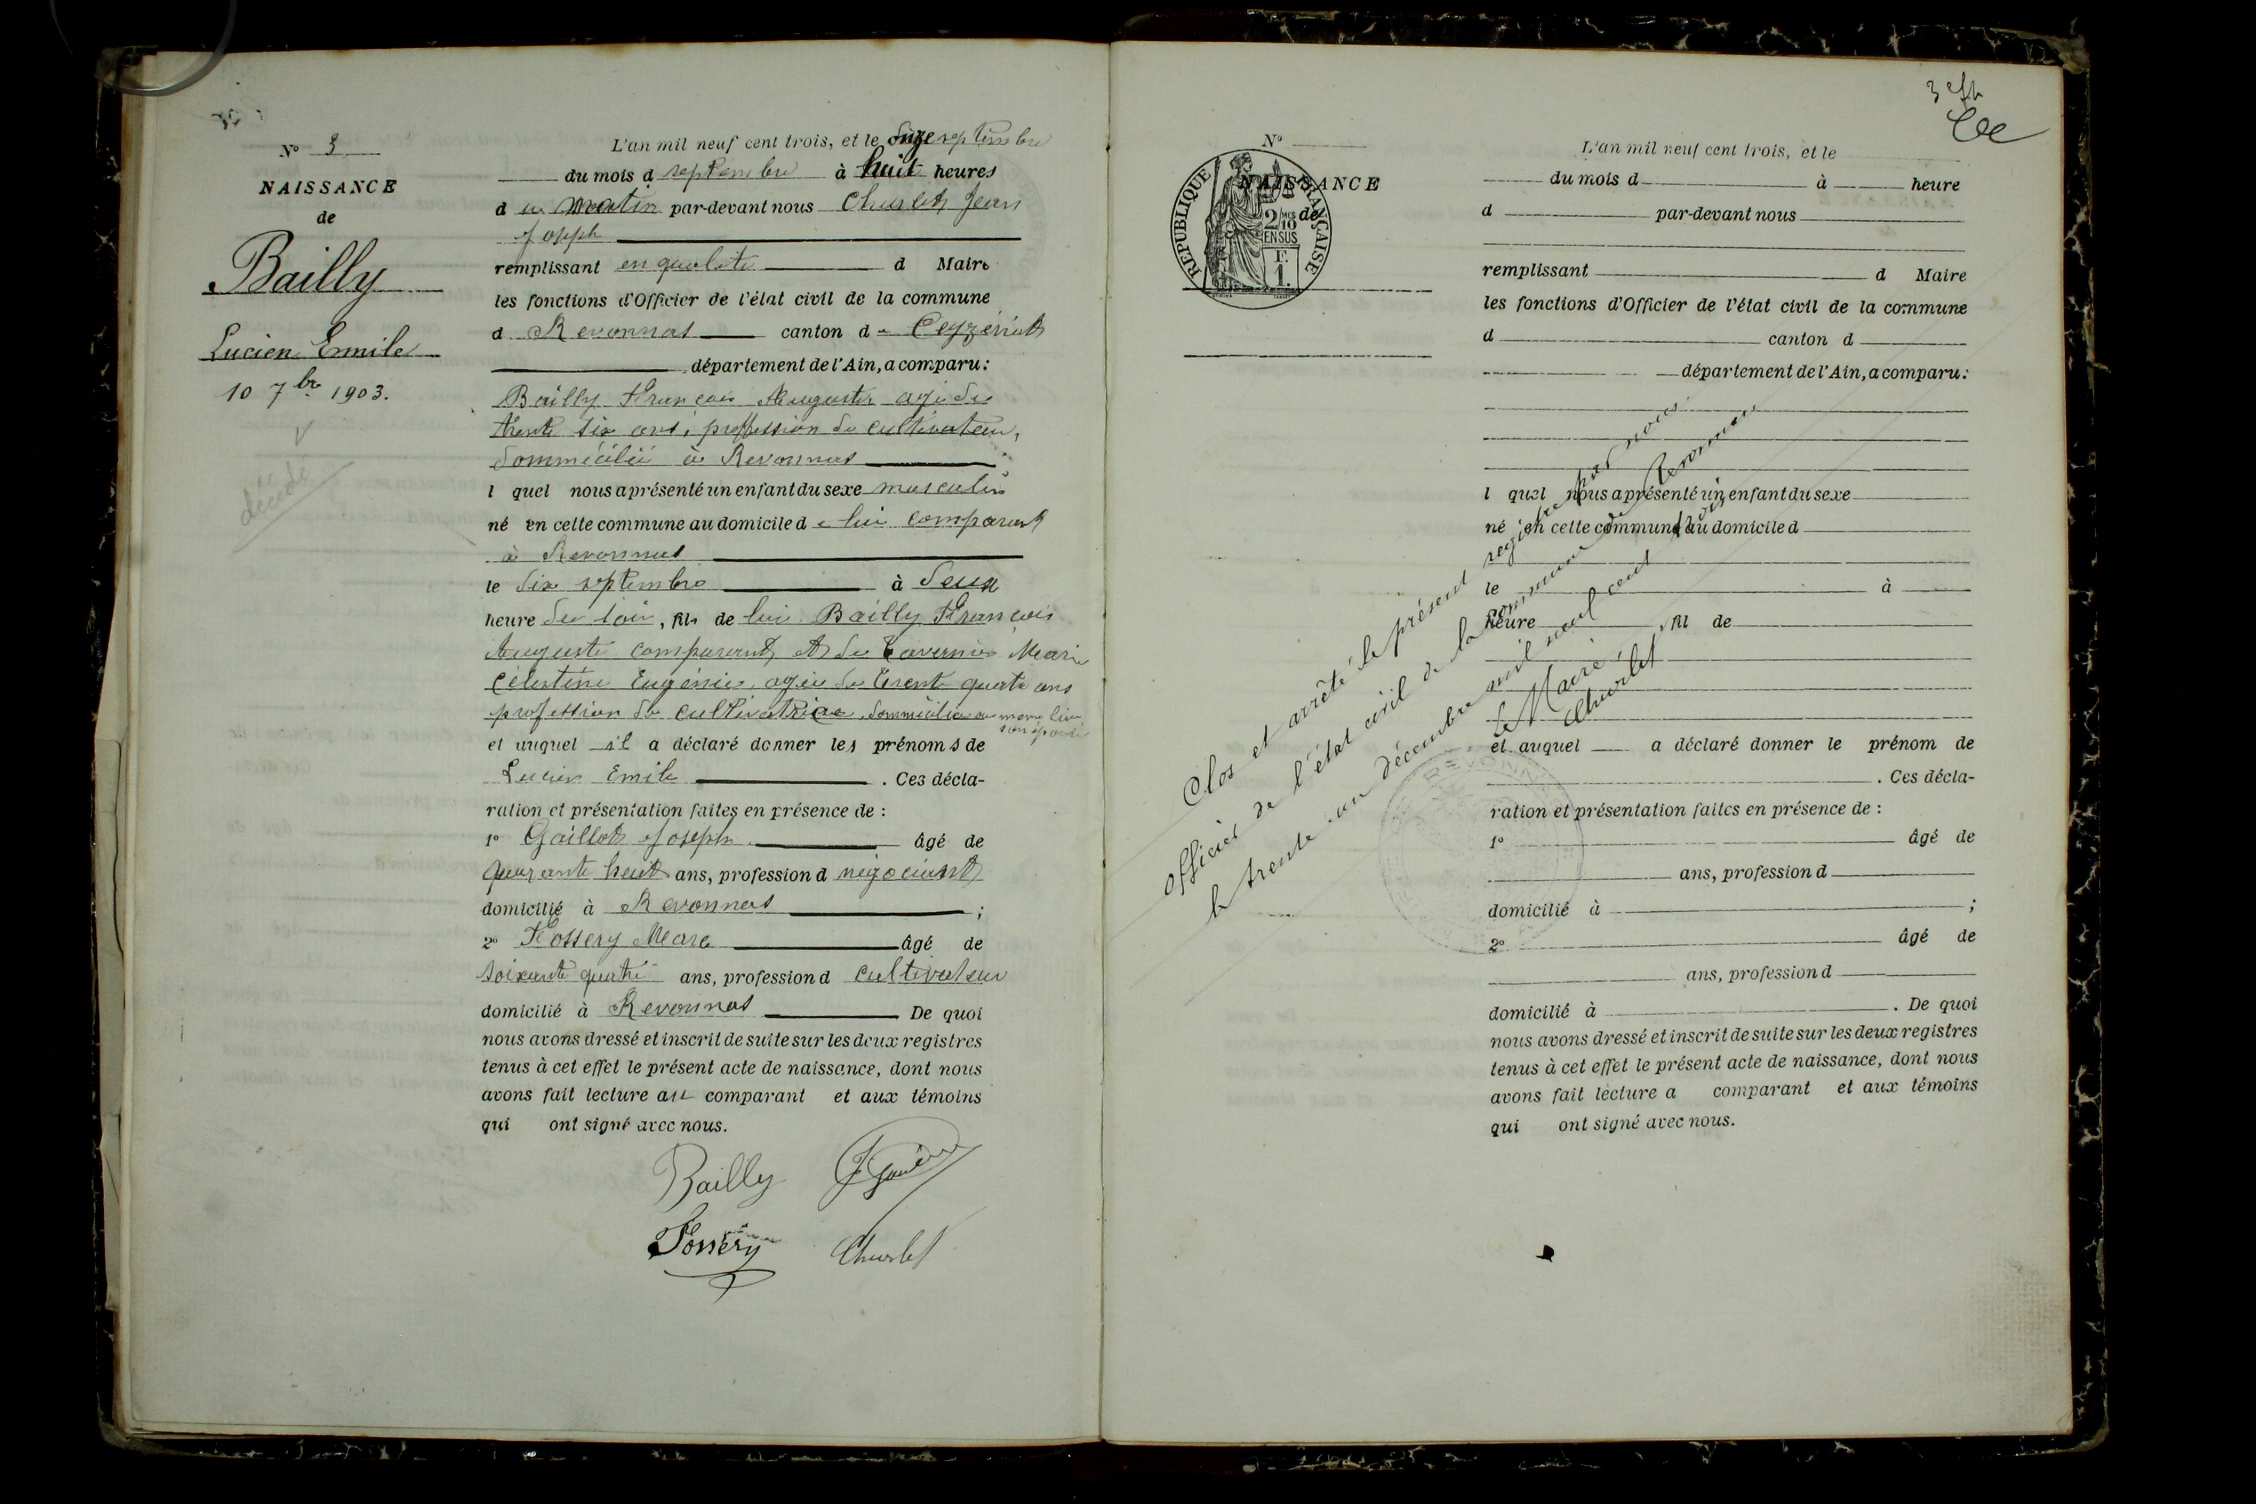 N° 3
NAISSANCE
de
Bailly
Lucien Emile
10 7bre 1903.
décédé
L'an mil neuf cent trois, et le onze septembre
du mois d septembre à huit heures
d u matin par-devant nous Charlet Jean
Joseph
remplissant en qualité d Maire
les fonctions d'Officier de l'état civil de la commune
d Revonnas canton d e Ceyzériat
département de l'Ain, a comparu :
Bailly François Auguste agé de
trente six ans, proffession de cultivateur,
dommicilié à Revonnas
l quel nous a présenté un enfant du sexe masculin
né en cette commune au domicile d e lui comparant
à Revonnas
le dix septembre à deux
heure du soir, fils de lui Bailly François
Auguste comparant et de Tavernier Marie
Célestine Eugénie, agée de trente quatre ans
profession de cultivatrice, dommiciliée au meme lieu
son épouse
et auquel il a déclaré donner les prénoms de
Lucien Emile . Ces décla-
ration et présentation faites en présence de :
1° Gaillot Joseph âgé de
quarante huit ans, profession d négociant
domicilié à Revonnas ;
2° Fossery Marc âgé de
soixante quatre ans, profession d cultivateur
domicilié à Revonnas De quoi
nous avons dressé et inscrit de suite sur les deux registres
tenus à cet effet le présent acte de naissance, dont nous
avons fait lecture au comparant et aux témoins
qui ont signé avec nous.
Bailly
Fossery Charlet
N°
NAISSANCE
de
RÉPUBLIQUE FRANÇAISE
2/10
EN SUS
F.
1.
L'an mil neuf cent trois, et le
du mois d à heure
d par-devant nous
remplissant d Maire
les fonctions d'Officier de l'état civil de la commune
d canton d
département de l'Ain, a comparu :
l quel nous a présenté un enfant du sexe
né en cette commune au domicile d
le à
heure , fil de
et auquel a déclaré donner le prénom de
. Ces décla-
ration et présentation faites en présence de :
1° âgé de
ans, profession d
domicilié à ;
2° âgé de
ans, profession d
domicilié à . De quoi
nous avons dressé et inscrit de suite sur les deux registres
tenus à cet effet le présent acte de naissance, dont nous
avons fait lecture a comparant et aux témoins
qui ont signé avec nous.
Clos et arrêté le présent registre par nous
officier de l'état civil de la commune de Revonnas
le trente un décembre mil neuf cent trois
Le Maire,
Charlet
REVONN